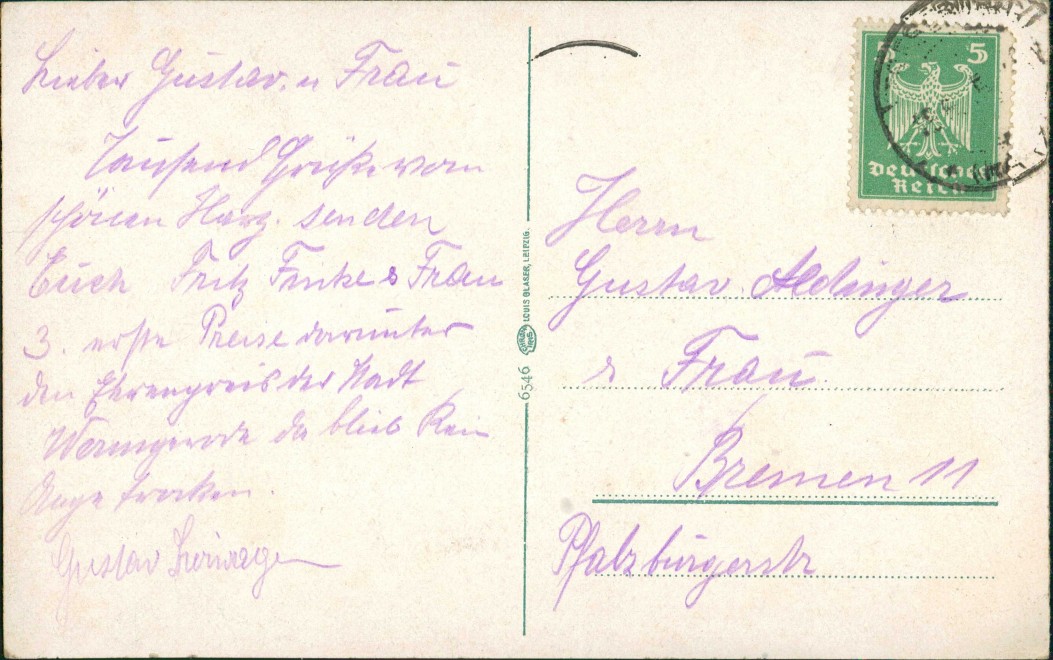 Lieber Gustav. u Frau
Tausend Grüße vom
schönen Harz. senden
Euch Fritz Finke & Frau
3. erste Preise darunter
den Ehrenpreis der Stadt
Wernigerode da blieb Kein
Auge trocken.
Gustav
5 5
Deutsches
Reich
Herrn
Gustav Aldinger
& Frau.
Bremen 11
Pfalzburgerstr
6546 LOUIS GLASER, LEIPZIG.